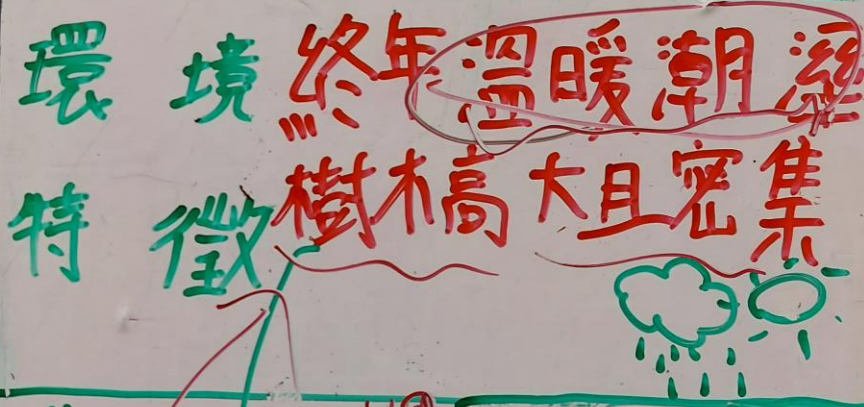 環境 終年溫暖潮溼
特徵 樹木高大且密集